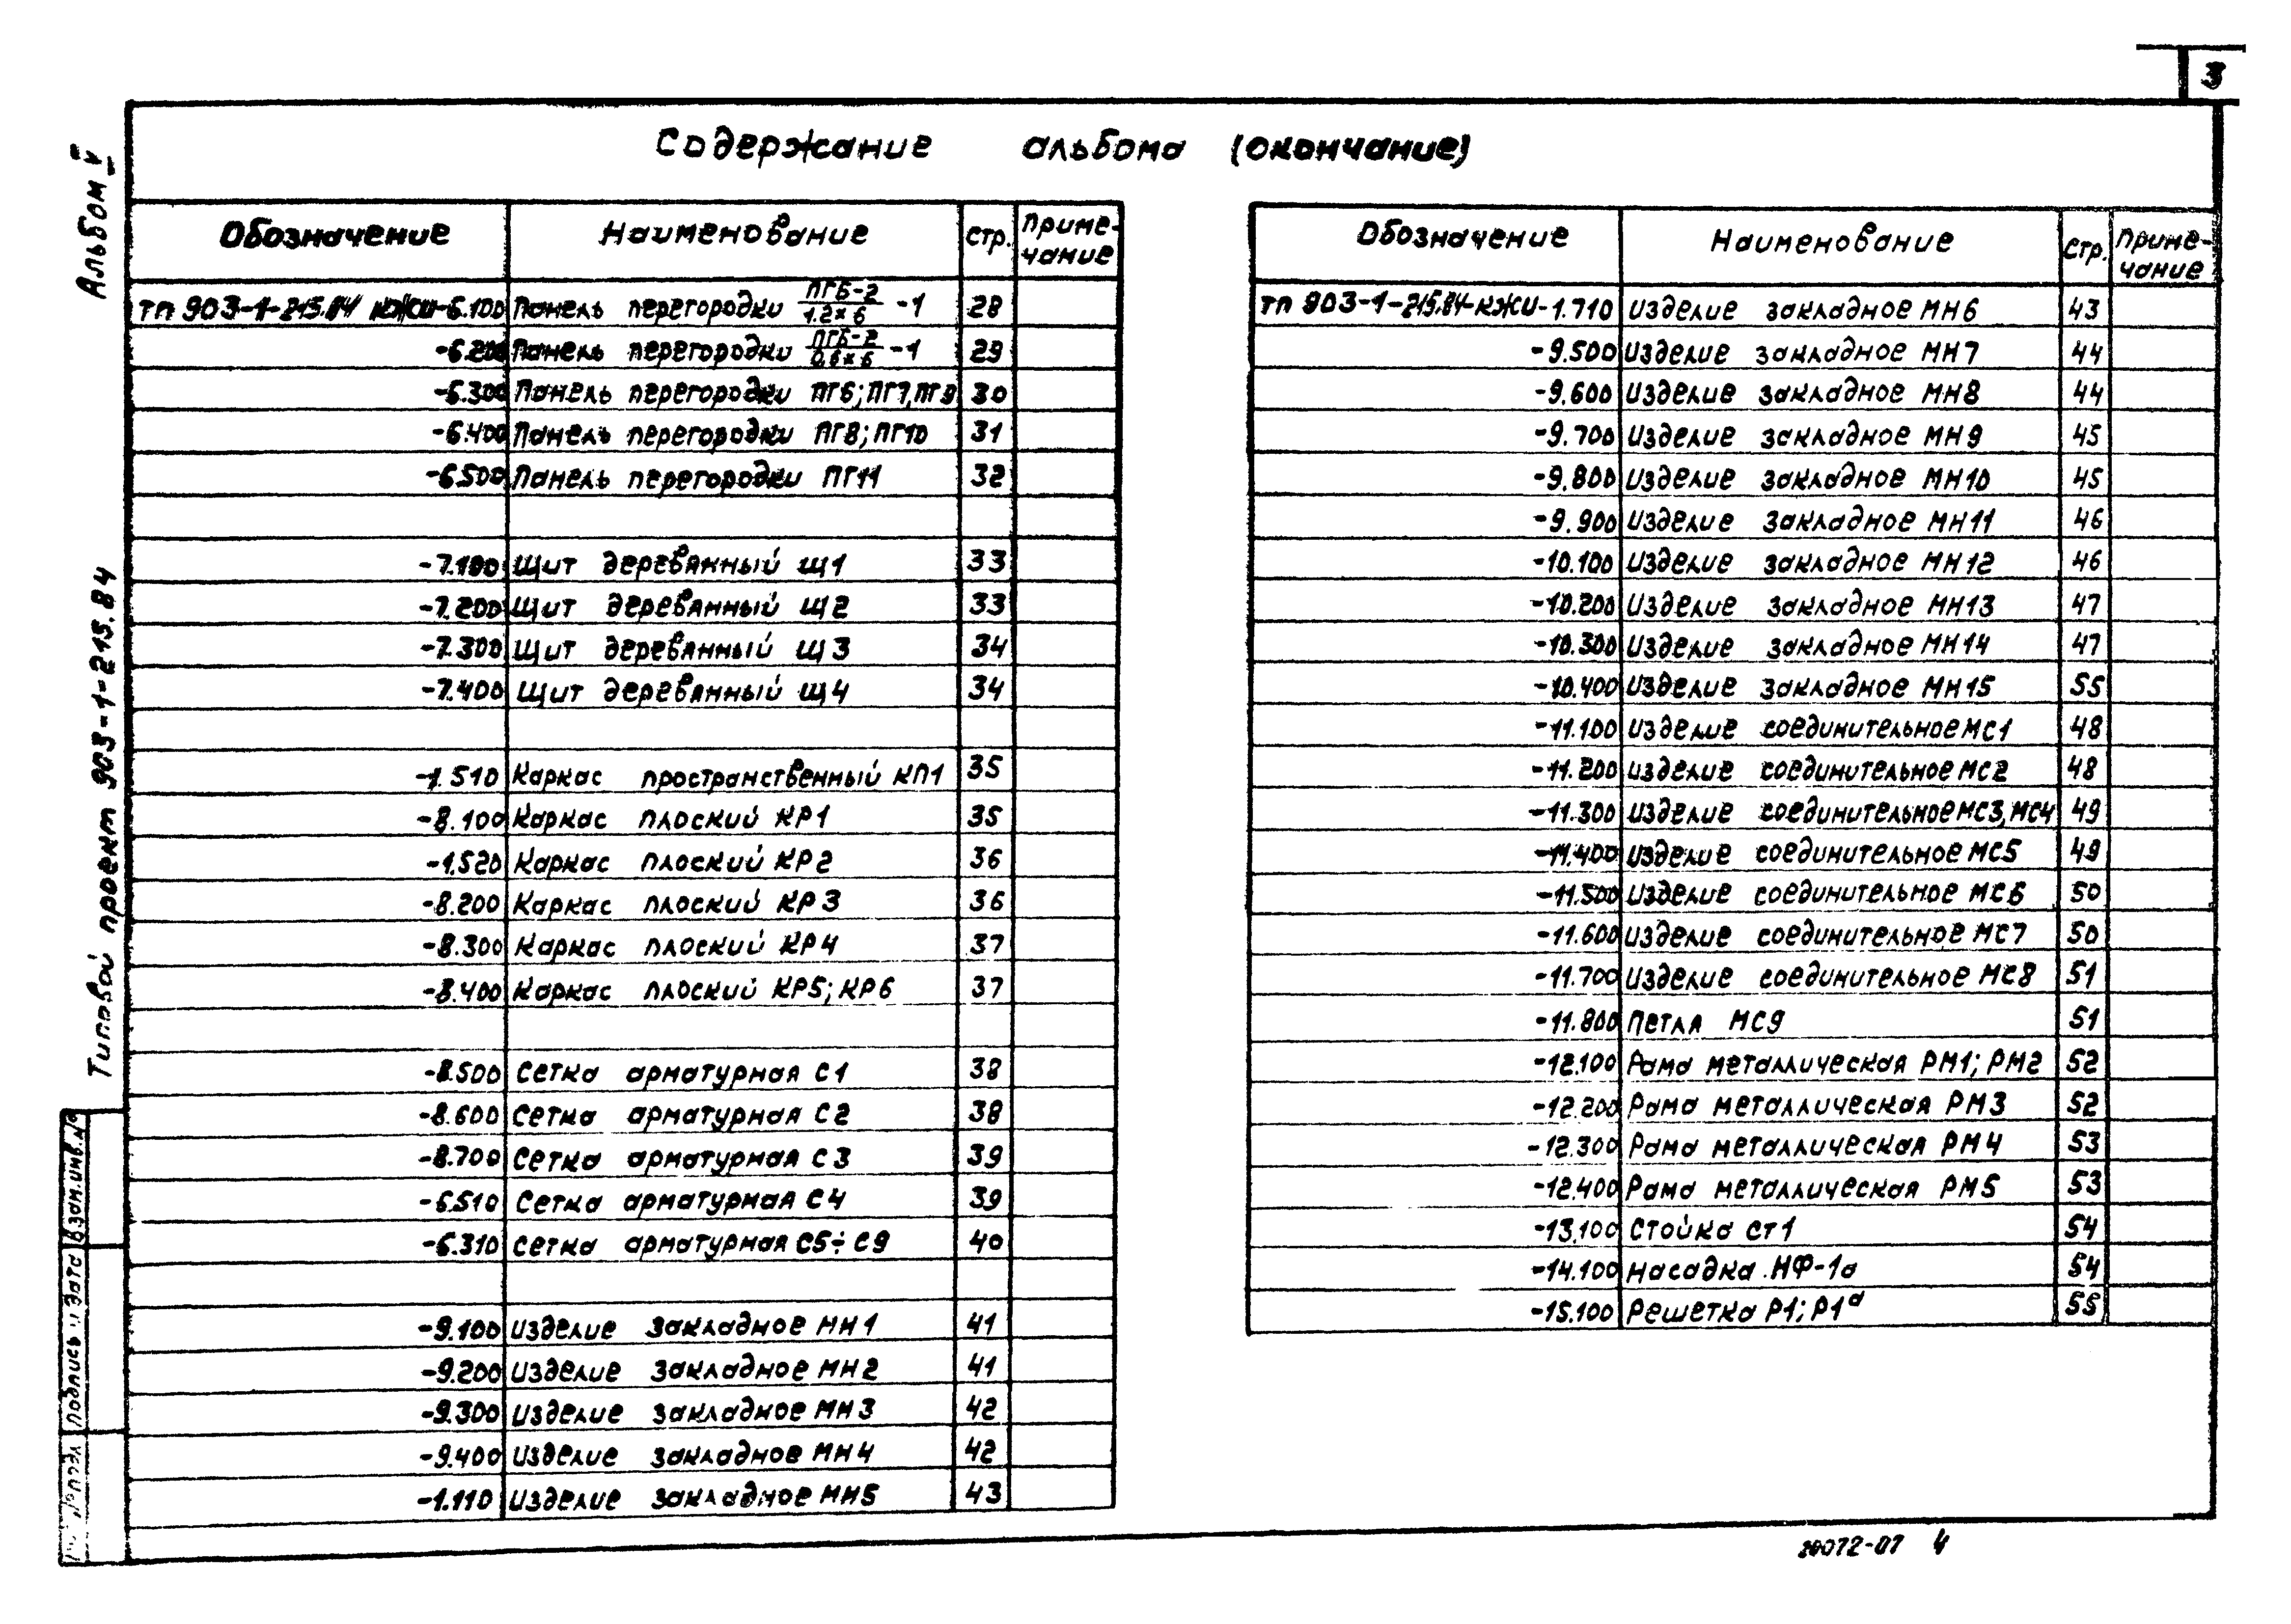 3
Содержание альбома (окончание)
Альбом V
Типовой проект 903-1-215.84
Взам.инв.№
Подпись и дата
Обозначение Наименование стр. Примечание
ТП 903-1-215.84 КЖИ-6.100 Панель перегородки ПГБ-2/1.2×6 -1 28
-6.200 Панель перегородки ПГБ-2/0.6×6 -1 29
-6.300 Панель перегородки ПГ6; ПГ7, ПГ9 30
-6.400 Панель перегородки ПГ8; ПГ10 31
-6.500 Панель перегородки ПГ11 32
-7.100 Щит деревянный Щ1 33
-7.200 Щит деревянный Щ2 33
-7.300 Щит деревянный Щ3 34
-7.400 Щит деревянный Щ4 34
-1.510 Каркас пространственный КП1 35
-8.100 Каркас плоский КР1 35
-1.520 Каркас плоский КР2 36
-8.200 Каркас плоский КР3 36
-8.300 Каркас плоский КР4 37
-8.400 Каркас плоский КР5; КР6 37
-8.500 Сетка арматурная С1 38
-8.600 Сетка арматурная С2 38
-8.700 Сетка арматурная С3 39
-6.510 Сетка арматурная С4 39
-6.310 Сетка арматурная С5÷С9 40
-9.100 Изделие закладное МН1 41
-9.200 Изделие закладное МН2 41
-9.300 Изделие закладное МН3 42
-9.400 Изделие закладное МН4 42
-1.110 Изделие закладное МН5 43
Обозначение Наименование Стр. Примечание
ТП 903-1-215.84-КЖИ-1.710 Изделие закладное МН6 43
-9.500 Изделие закладное МН7 44
-9.600 Изделие закладное МН8 44
-9.700 Изделие закладное МН9 45
-9.800 Изделие закладное МН10 45
-9.900 Изделие закладное МН11 46
-10.100 Изделие закладное МН12 46
-10.200 Изделие закладное МН13 47
-10.300 Изделие закладное МН14 47
-10.400 Изделие закладное МН15 55
-11.100 Изделие соединительное МС1 48
-11.200 Изделие соединительное МС2 48
-11.300 Изделие соединительное МС3, МС4 49
-11.400 Изделие соединительное МС5 49
-11.500 Изделие соединительное МС6 50
-11.600 Изделие соединительное МС7 50
-11.700 Изделие соединительное МС8 51
-11.800 Петля МС9 51
-12.100 Рама металлическая РМ1; РМ2 52
-12.200 Рама металлическая РМ3 52
-12.300 Рама металлическая РМ4 53
-12.400 Рама металлическая РМ5 53
-13.100 Стойка Ст1 54
-14.100 Насадка НФ-1а 54
-15.100 Решетка Р1; Р1а 55
20072-07 4